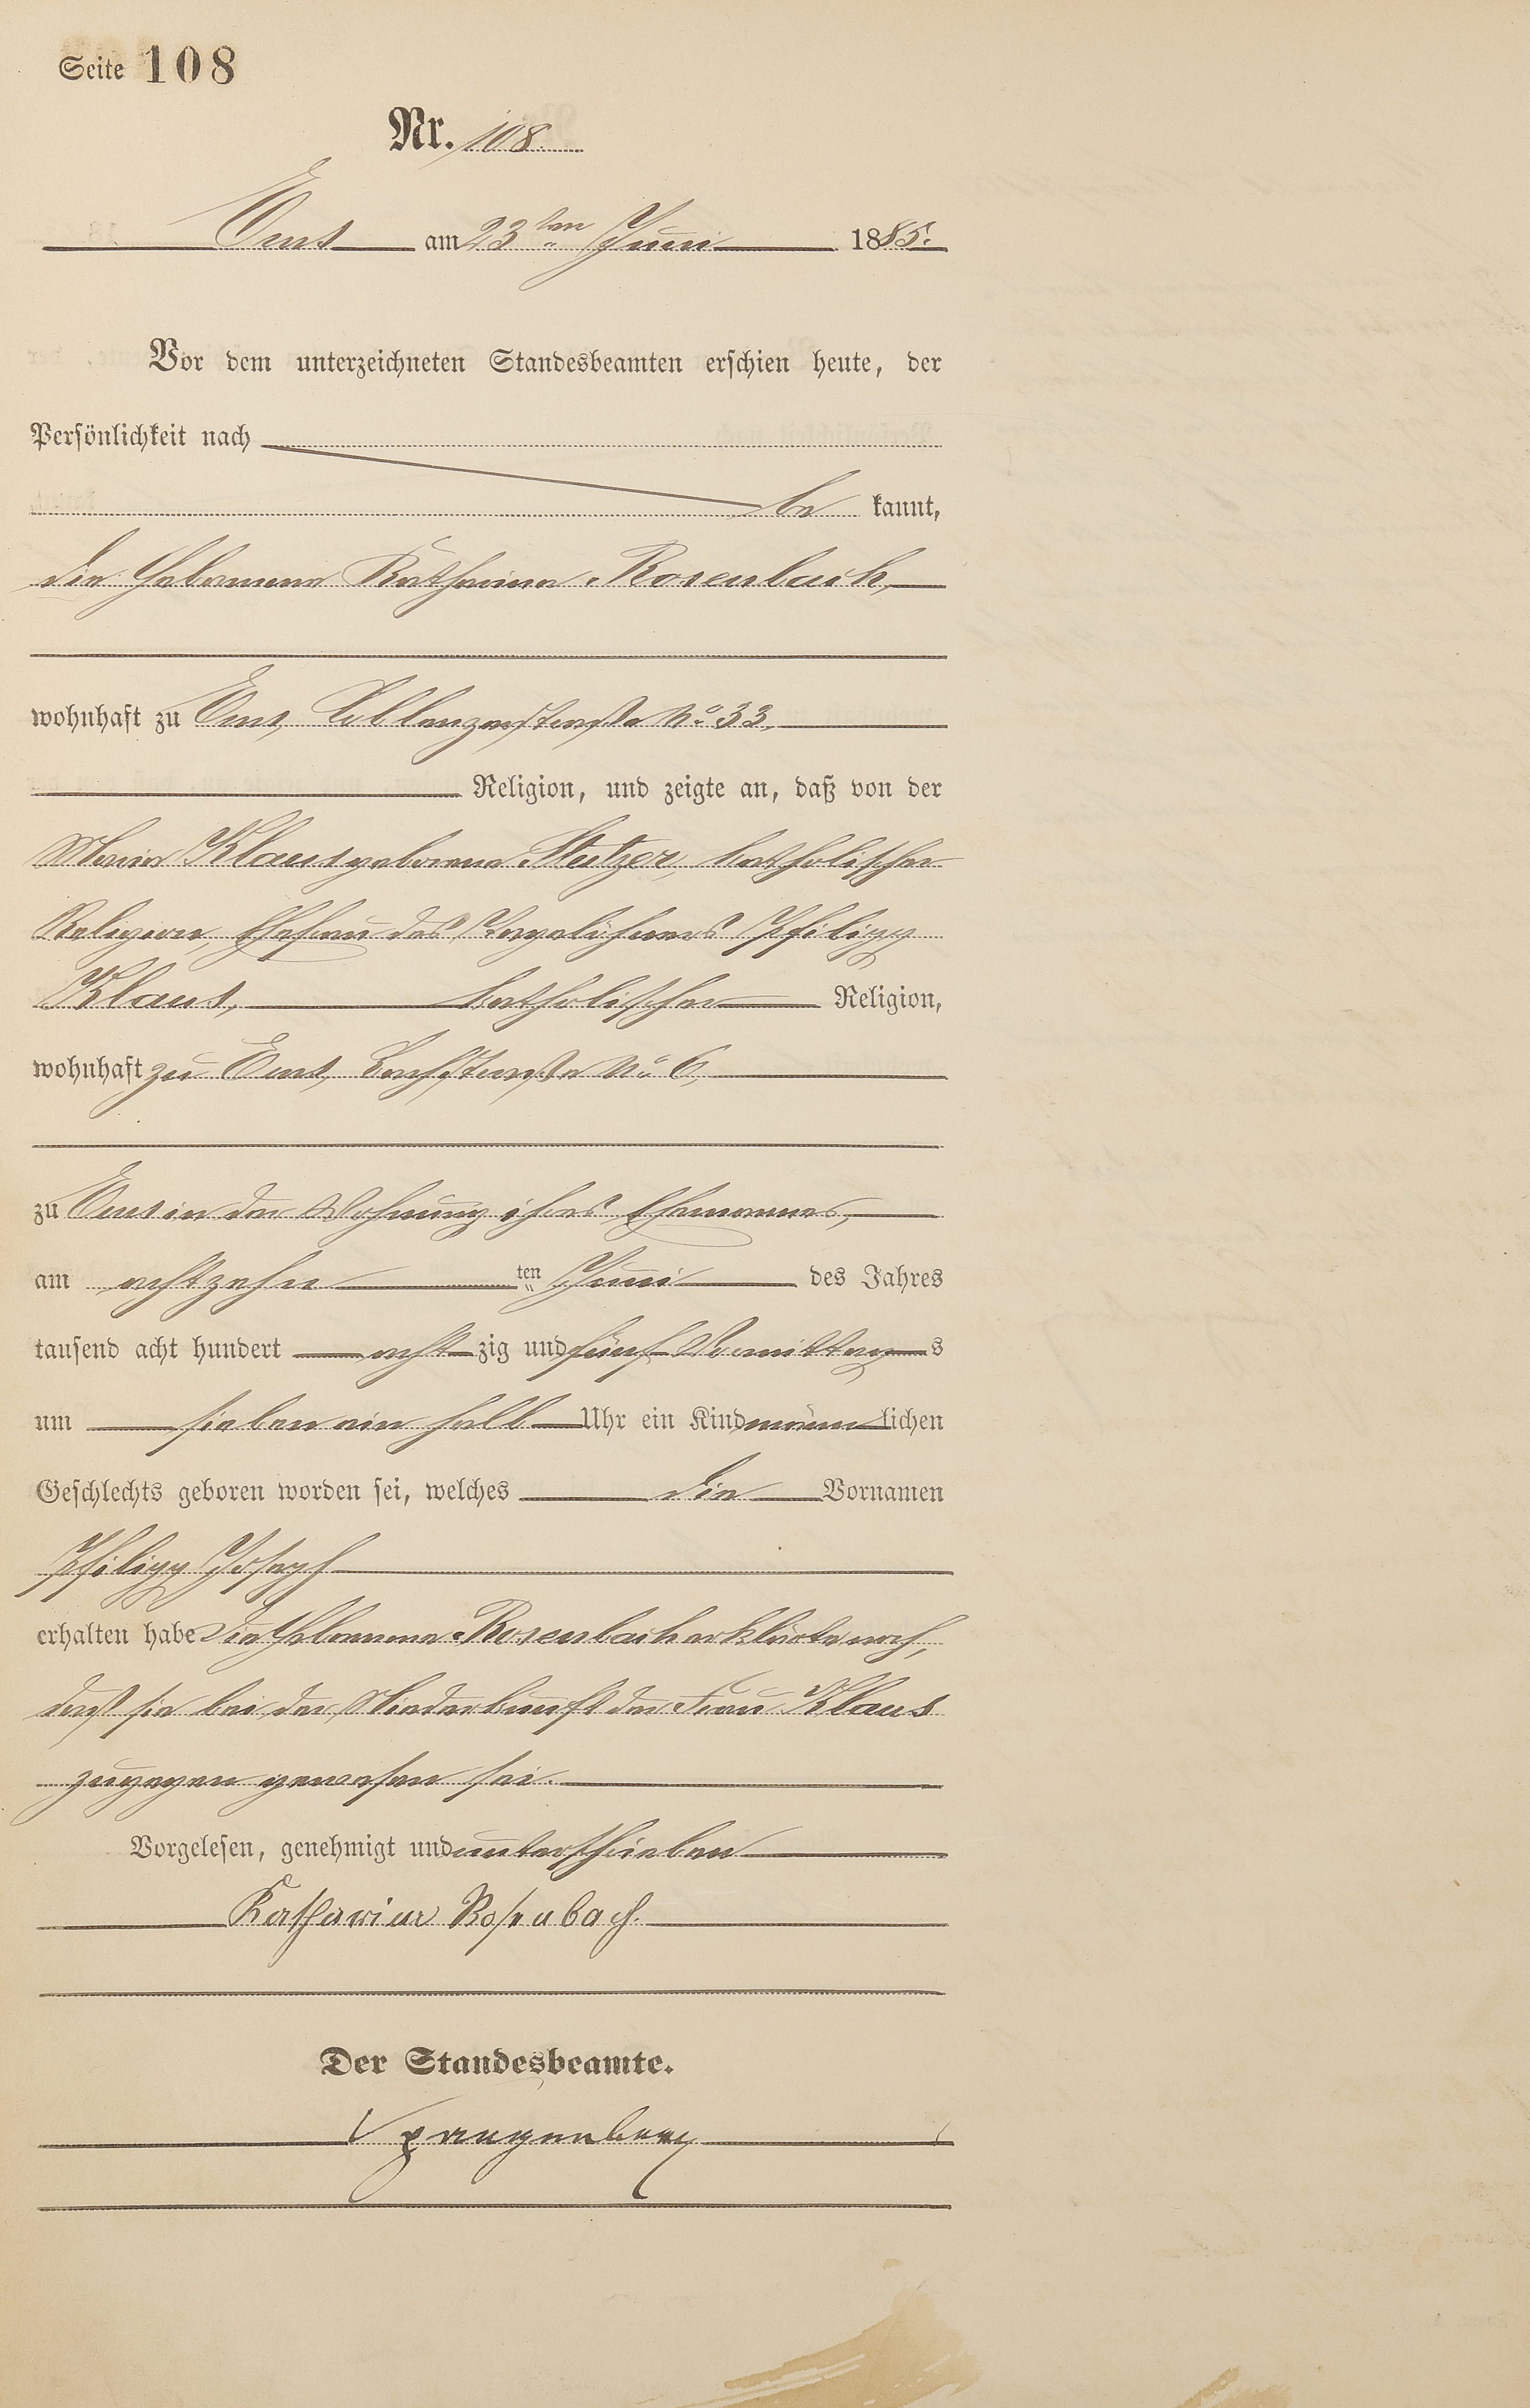 Seite 108
Nr. 108.
Ems am 23ten Juni 1885.
Vor dem unterzeichneten Standesbeamten erschien heute, der
Persönlichkeit nach
be kannt,
die Hebamme Katharina Rosenbach,
wohnhaft zu Ems, Coblenzerstraße No 33,
Religion, und zeigte an, daß von der
Maria Klaus geborene Stutzer, katholischer
Religion, Ehefrau des Tagelöhners Philipp
Klaus, katholischer Religion,
wohnhaft zu Ems, Bachstraße No 6,
zu Ems in der Wohnung ihres Ehemannes,
am achtzehn ten Juni des Jahres
tausend acht hundert acht zig und fünf Vormittags
um sieben ein halb Uhr ein Kind männlichen
Geschlechts geboren worden sei, welches die Vornamen
Philipp Joseph
erhalten habe Die Hebamme Rosenbach erklärte noch,
daß sie bei der Niederkunft der Frau Klaus
zugegen gewesen sei.
Vorgelesen, genehmigt und unterschrieben
Katharina Rosenbach.
Der Standesbeamte.
Spangenberg